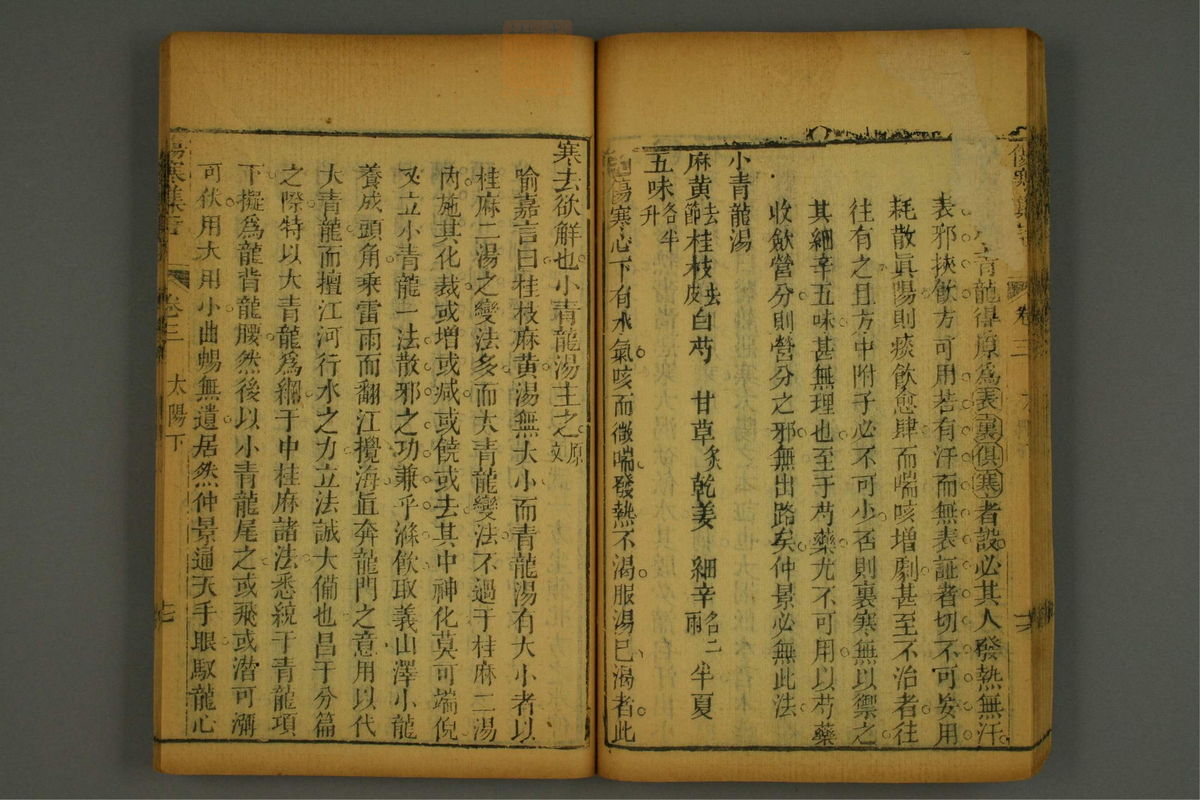 小青龍得原爲表裏俱寒者設必其人發熱無汗
表邪挾飲方可用若有汗而無表証者切不可妄用
耗散眞陽則痰飲愈肆而喘咳增劇甚至不治者往
往有之且方中附子必不可少否則裏寒無以禦之
其細辛五味甚無理也至于芍藥尤不可用以芍藥
收斂營分則營分之邪無出路矣仲景必無此法
小青龍湯
麻黄去節桂枝去皮白芍 甘草炙 乾姜 細辛各二兩 半夏
五味各半升
傷寒心下有水氣咳而微喘發熱不渴服湯已渴者此
寒去欲解也小青龍湯主之原文
喻嘉言曰桂枝麻黄湯無大小而青龍湯有大小者以
桂麻二湯之變法多而大青龍變法不過于桂麻二湯
内施其化裁或增或減或饒或去其中神化莫可端倪
又立小青龍一法散邪之功兼乎滌飲取義山澤小龍
養成頭角乘雷雨而翻江攪海直奔龍門之意用以代
大青龍而擅江河行水之力立法誠大備也昌于分篇
之際特以大青龍爲綱于中桂麻諸法悉統于青龍項
下擬爲龍背龍腰然後以小青龍尾之或飛或潛可瀰
可伏用大用小曲暢無遺居然仲景通天手眼馭龍心
傷寒集言 卷三 太陽下 七